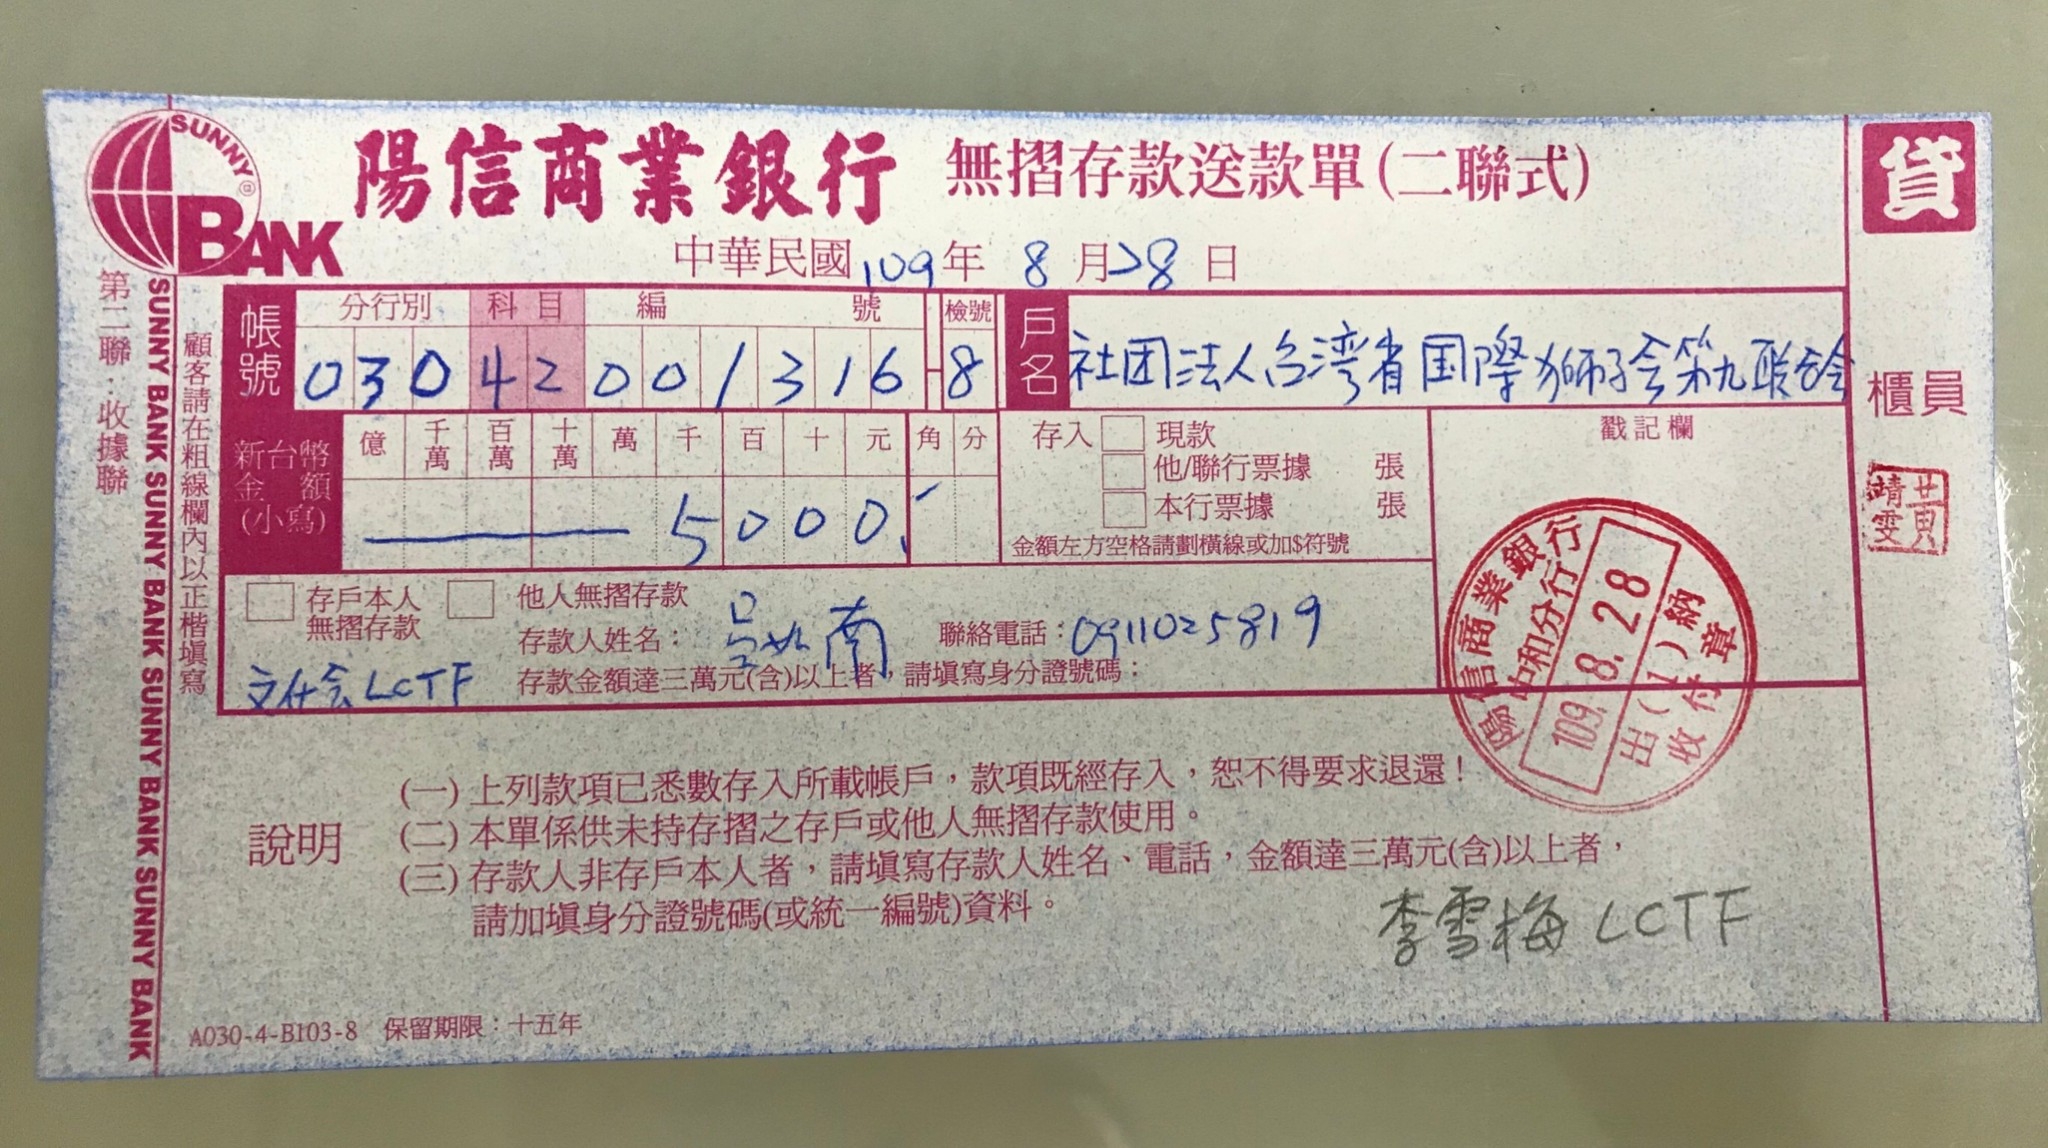 SUNNY
BANK
陽信商業銀行 無摺存款送款單(二聯式)
貸
中華民國109年 8月28日
第二聯:收據聯
SUNNY BANK SUNNY BANK SUNNY BANK SUNNY BANK SUNNY BANK SUNNY BANK
顧客請在粗線欄內以正楷填寫
帳號 分行別 科目 編號 檢號
030 42 001316-8
戶名 社団法人台湾省国際獅子会第九聯
櫃員
黃靖雯
新台幣金額(小寫)
億 千萬 百萬 十萬 萬 千 百 十 元 角 分
5000
存入 現款
他/聯行票據 張
本行票據 張
金額左方空格請劃橫線或加$符號
戳記欄
陽信商業銀行
中和分行
109. 8. 28
出(1)納
收付章
存戶本人無摺存款
他人無摺存款
存款人姓名: 吳 南 聯絡電話:0911025819
存款金額達三萬元(含)以上者,請填寫身分證號碼:
LCTF
說明
(一)上列款項已悉數存入所載帳戶,款項既經存入,恕不得要求退還!
(二)本單係供未持存摺之存戶或他人無摺存款使用。
(三)存款人非存戶本人者,請填寫存款人姓名、電話,金額達三萬元(含)以上者,
請加填身分證號碼(或統一編號)資料。
李雪梅 LCTF
A030-4-B103-8 保留期限:十五年